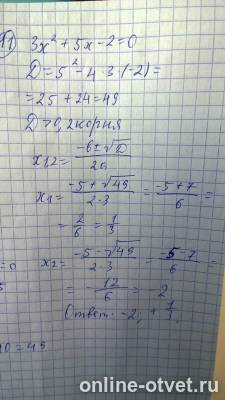 11) 3x² + 5x - 2 = 0
D = 5² - 4·3·(-2) =
= 25 + 24 = 49
D > 0, 2 корня
x₁,₂ = -b ± √D / 2a
x₁ = -5 + √49 / 2·3 = -5 + 7 / 6 =
= 2/6 = 1/3
x₂ = -5 - √49 / 2·3 = -5 - 7 / 6 =
= -12/6 = -2
Ответ: -2; + 1/3.
=0
10 = 49
online-otvet.ru